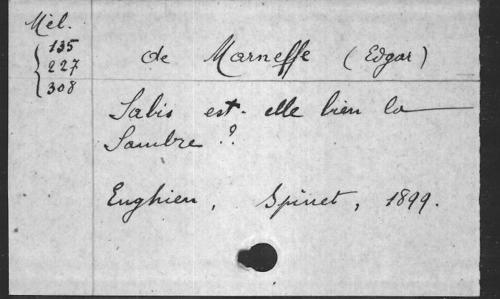 Mél.
135
227
308
de Marneffe (Edgar)
Sabis est-elle bien la
Sambre ?
Enghien, Spinet, 1899.